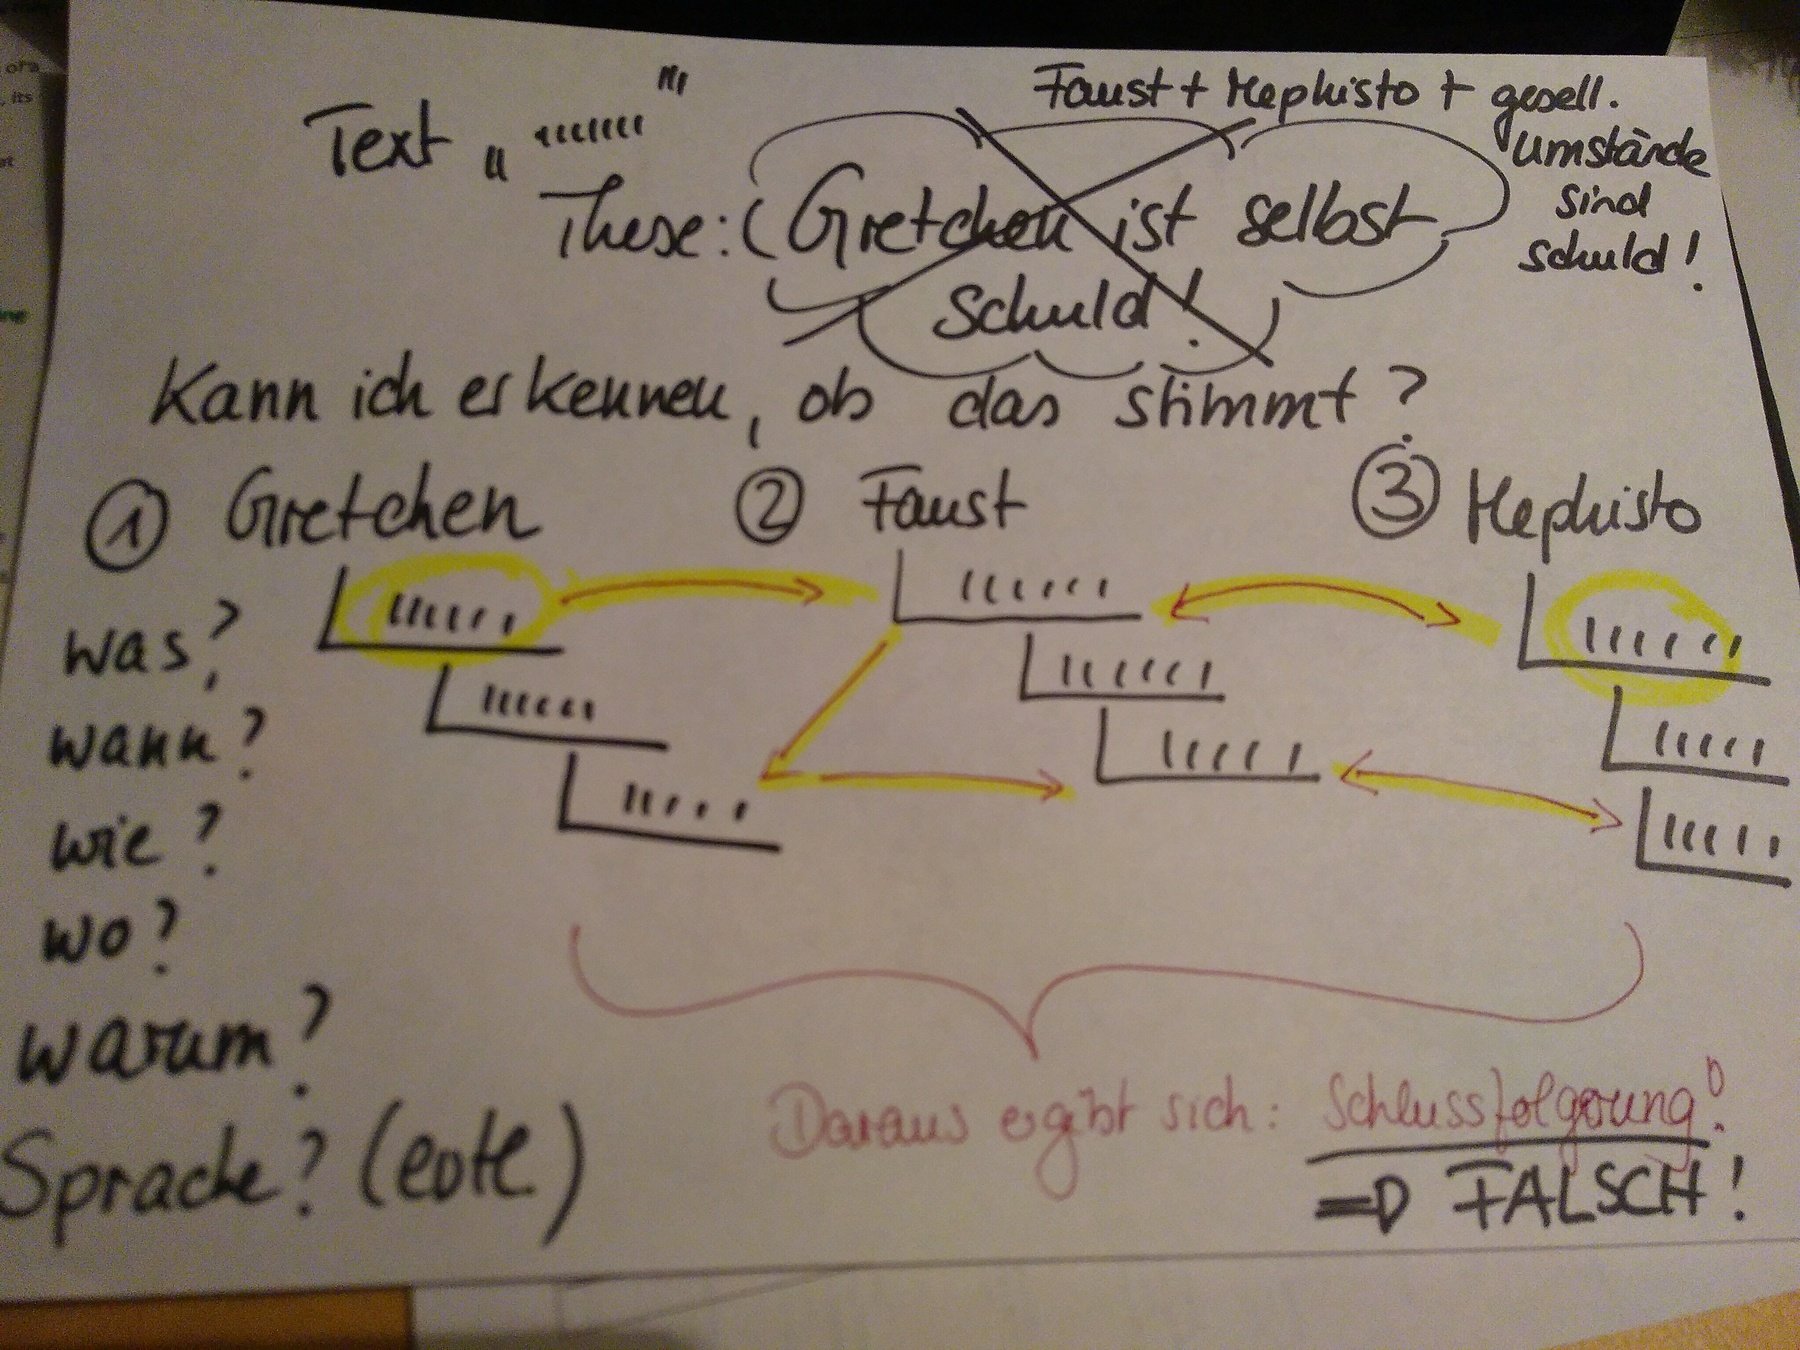 Text „ "
Faust + Mephisto + gesell.
Umstände
sind
schuld!
These: (Gretchen ist selbst
Schuld!
Kann ich erkennen, ob das stimmt?
① Gretchen ② Faust ③ Mephisto
was?
wann?
wie?
wo?
warum?
Sprache? (evtl.)
Daraus ergibt sich: Schlussfolgerung!
=> FALSCH!